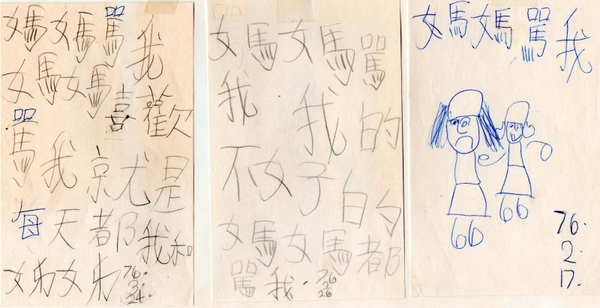 媽媽罵我
媽媽喜歡
罵我就是
每天都我和
姊姊 76.3.24.
媽媽罵
我 我的
不好的
媽媽都
罵我. 76 2 26
媽媽罵我
76.
2.
17.